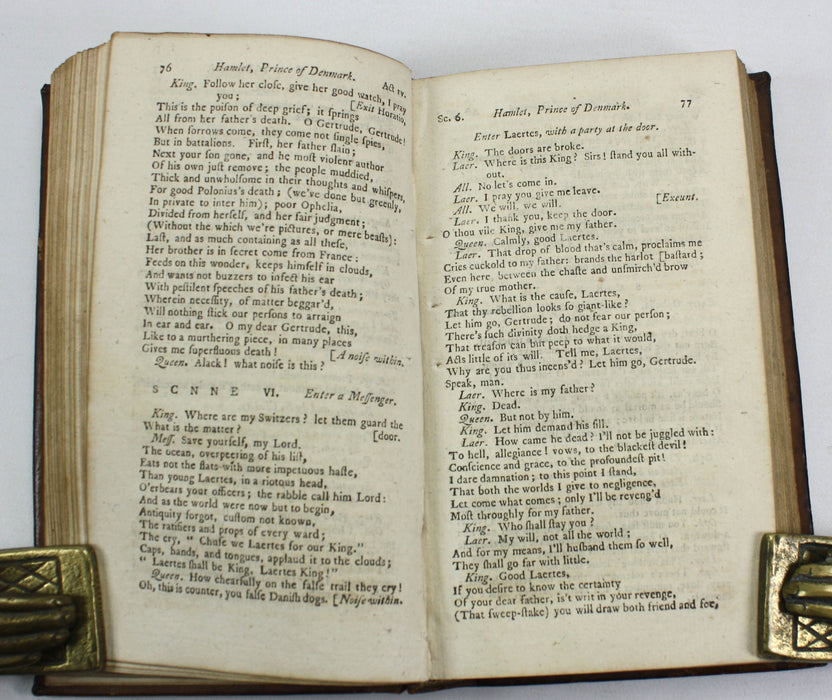 76 Hamlet, Prince of Denmark. Act IV.
King. Follow her close, give her good watch, I pray
you; [Exit Horatio.
This is the poison of deep grief; it springs
All from her father's death. O Gertrude, Gertrude!
When sorrows come, they come not single spies,
But in battalions. First, her father slain;
Next your son gone, and he most violent author
Of his own just remove; the people muddied,
Thick and unwholsome in their thoughts and whispers,
For good Polonius's death; (we've done but greenly,
In private to inter him); poor Ophelia,
Divided from herself, and her fair judgment;
(Without the which we're pictures, or mere beasts):
Last, and as much containing as all these,
Her brother is in secret come from France:
Feeds on this wonder, keeps himself in clouds,
And wants not buzzers to infect his ear
With pestilent speeches of his father's death;
Wherein necessity, of matter beggar'd,
Will nothing stick our persons to arraign
In ear and ear. O my dear Gertrude, this,
Like to a murthering piece, in many places
Gives me superfluous death! [A noise within.
Queen. Alack! what noise is this?
SCNNE VI. Enter a Messenger.
King. Where are my Switzers? let them guard the
What is the matter? [door.
Mess. Save yourself, my Lord.
The ocean, overpeering of his list,
Eats not the flats with more impetuous haste,
Than young Laertes, in a riotous head,
O'erbears your officers; the rabble call him Lord:
And as the world were now but to begin,
Antiquity forgot, custom not known,
The ratifiers and props of every ward;
The cry, "Chuse we Laertes for our King."
Caps, hands, and tongues, applaud it to the clouds;
"Laertes shall be King, Laertes King!"
Queen. How chearfully on the false trail they cry!
Oh, this is counter, you false Danish dogs. [Noise within.
Sc. 6. Hamlet, Prince of Denmark. 77
Enter Laertes, with a party at the door.
King. The doors are broke.
Laer. Where is this King? Sirs! stand you all with-
out.
All. No let's come in.
Laer. I pray you give me leave.
All. We will, we will. [Exeunt.
Laer. I thank you, keep the door.
O thou vile King, give me my father.
Queen. Calmly, good Laertes.
Laer. That drop of blood that's calm, proclaims me
Cries cuckold to my father: brands the harlot [bastard;
Even here, between the chaste and unsmirch'd brow
Of my true mother.
King. What is the cause, Laertes,
That thy rebellion looks so giant-like?
Let him go, Gertrude; do not fear our person;
There's such divinity doth hedge a King,
That treason can but peep to what it would,
Acts little of it's will. Tell me, Laertes,
Why are you thus incens'd? Let him go, Gertrude.
Speak, man.
Laer. Where is my father?
King. Dead.
Queen. But not by him.
King. Let him demand his fill.
Laer. How came he dead? I'll not be juggled with:
To hell, allegiance! vows, to the blackest devil!
Conscience and grace, to the profoundest pit!
I dare damnation; to this point I stand,
That both the worlds I give to negligence,
Let come what comes; only I'll be reveng'd
Most throughly for my father.
King. Who shall stay you?
Laer. My will, not all the world;
And for my means, I'll husband them so well,
They shall go far with little.
King. Good Laertes,
If you desire to know the certainty
Of your dear father, is't writ in your revenge,
(That sweep-stake) you will draw both friend and foe,